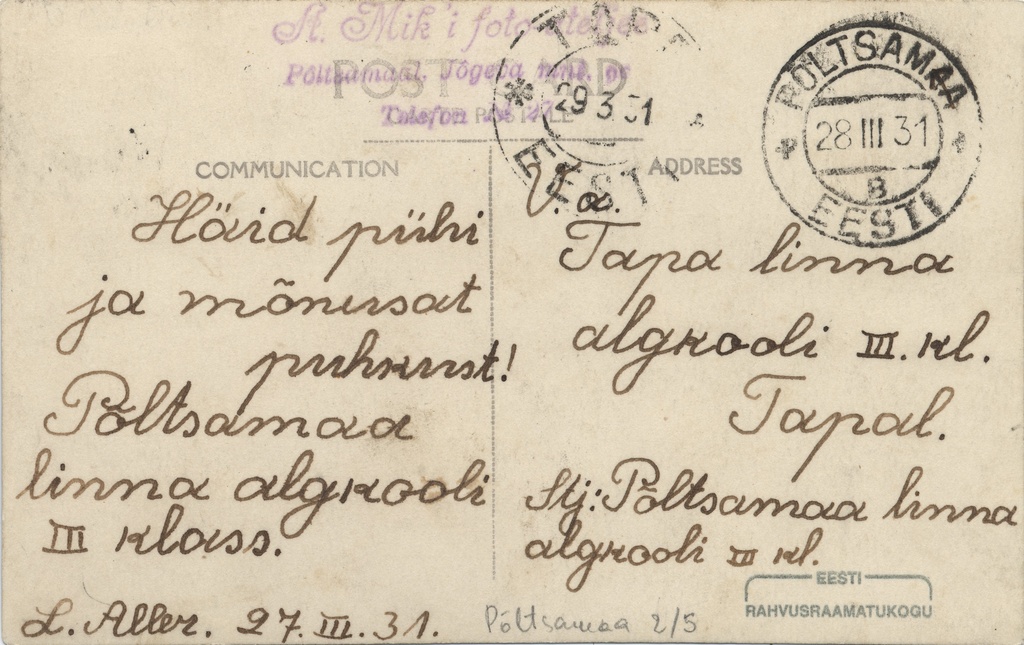 A. Mik'i foto ateljee
Põltsamaal, Jõgeva mnt. nr
Telefon
POST CARD
CARTE POSTALE
TAPA
29 3 31
EESTI
PÕLTSAMAA
28 III 31
B
EESTI
COMMUNICATION
Häid pühi
ja mõnusat
puhkust!
Põltsamaa
linna algkooli
III klass.
L. Aller. 27.III.31.
ADDRESS
V. a.
Tapa linna
algkooli III. kl.
Tapal.
Stj: Põltsamaa linna
algkooli III kl.
Põltsamaa 2/5
EESTI
RAHVUSRAAMATUKOGU